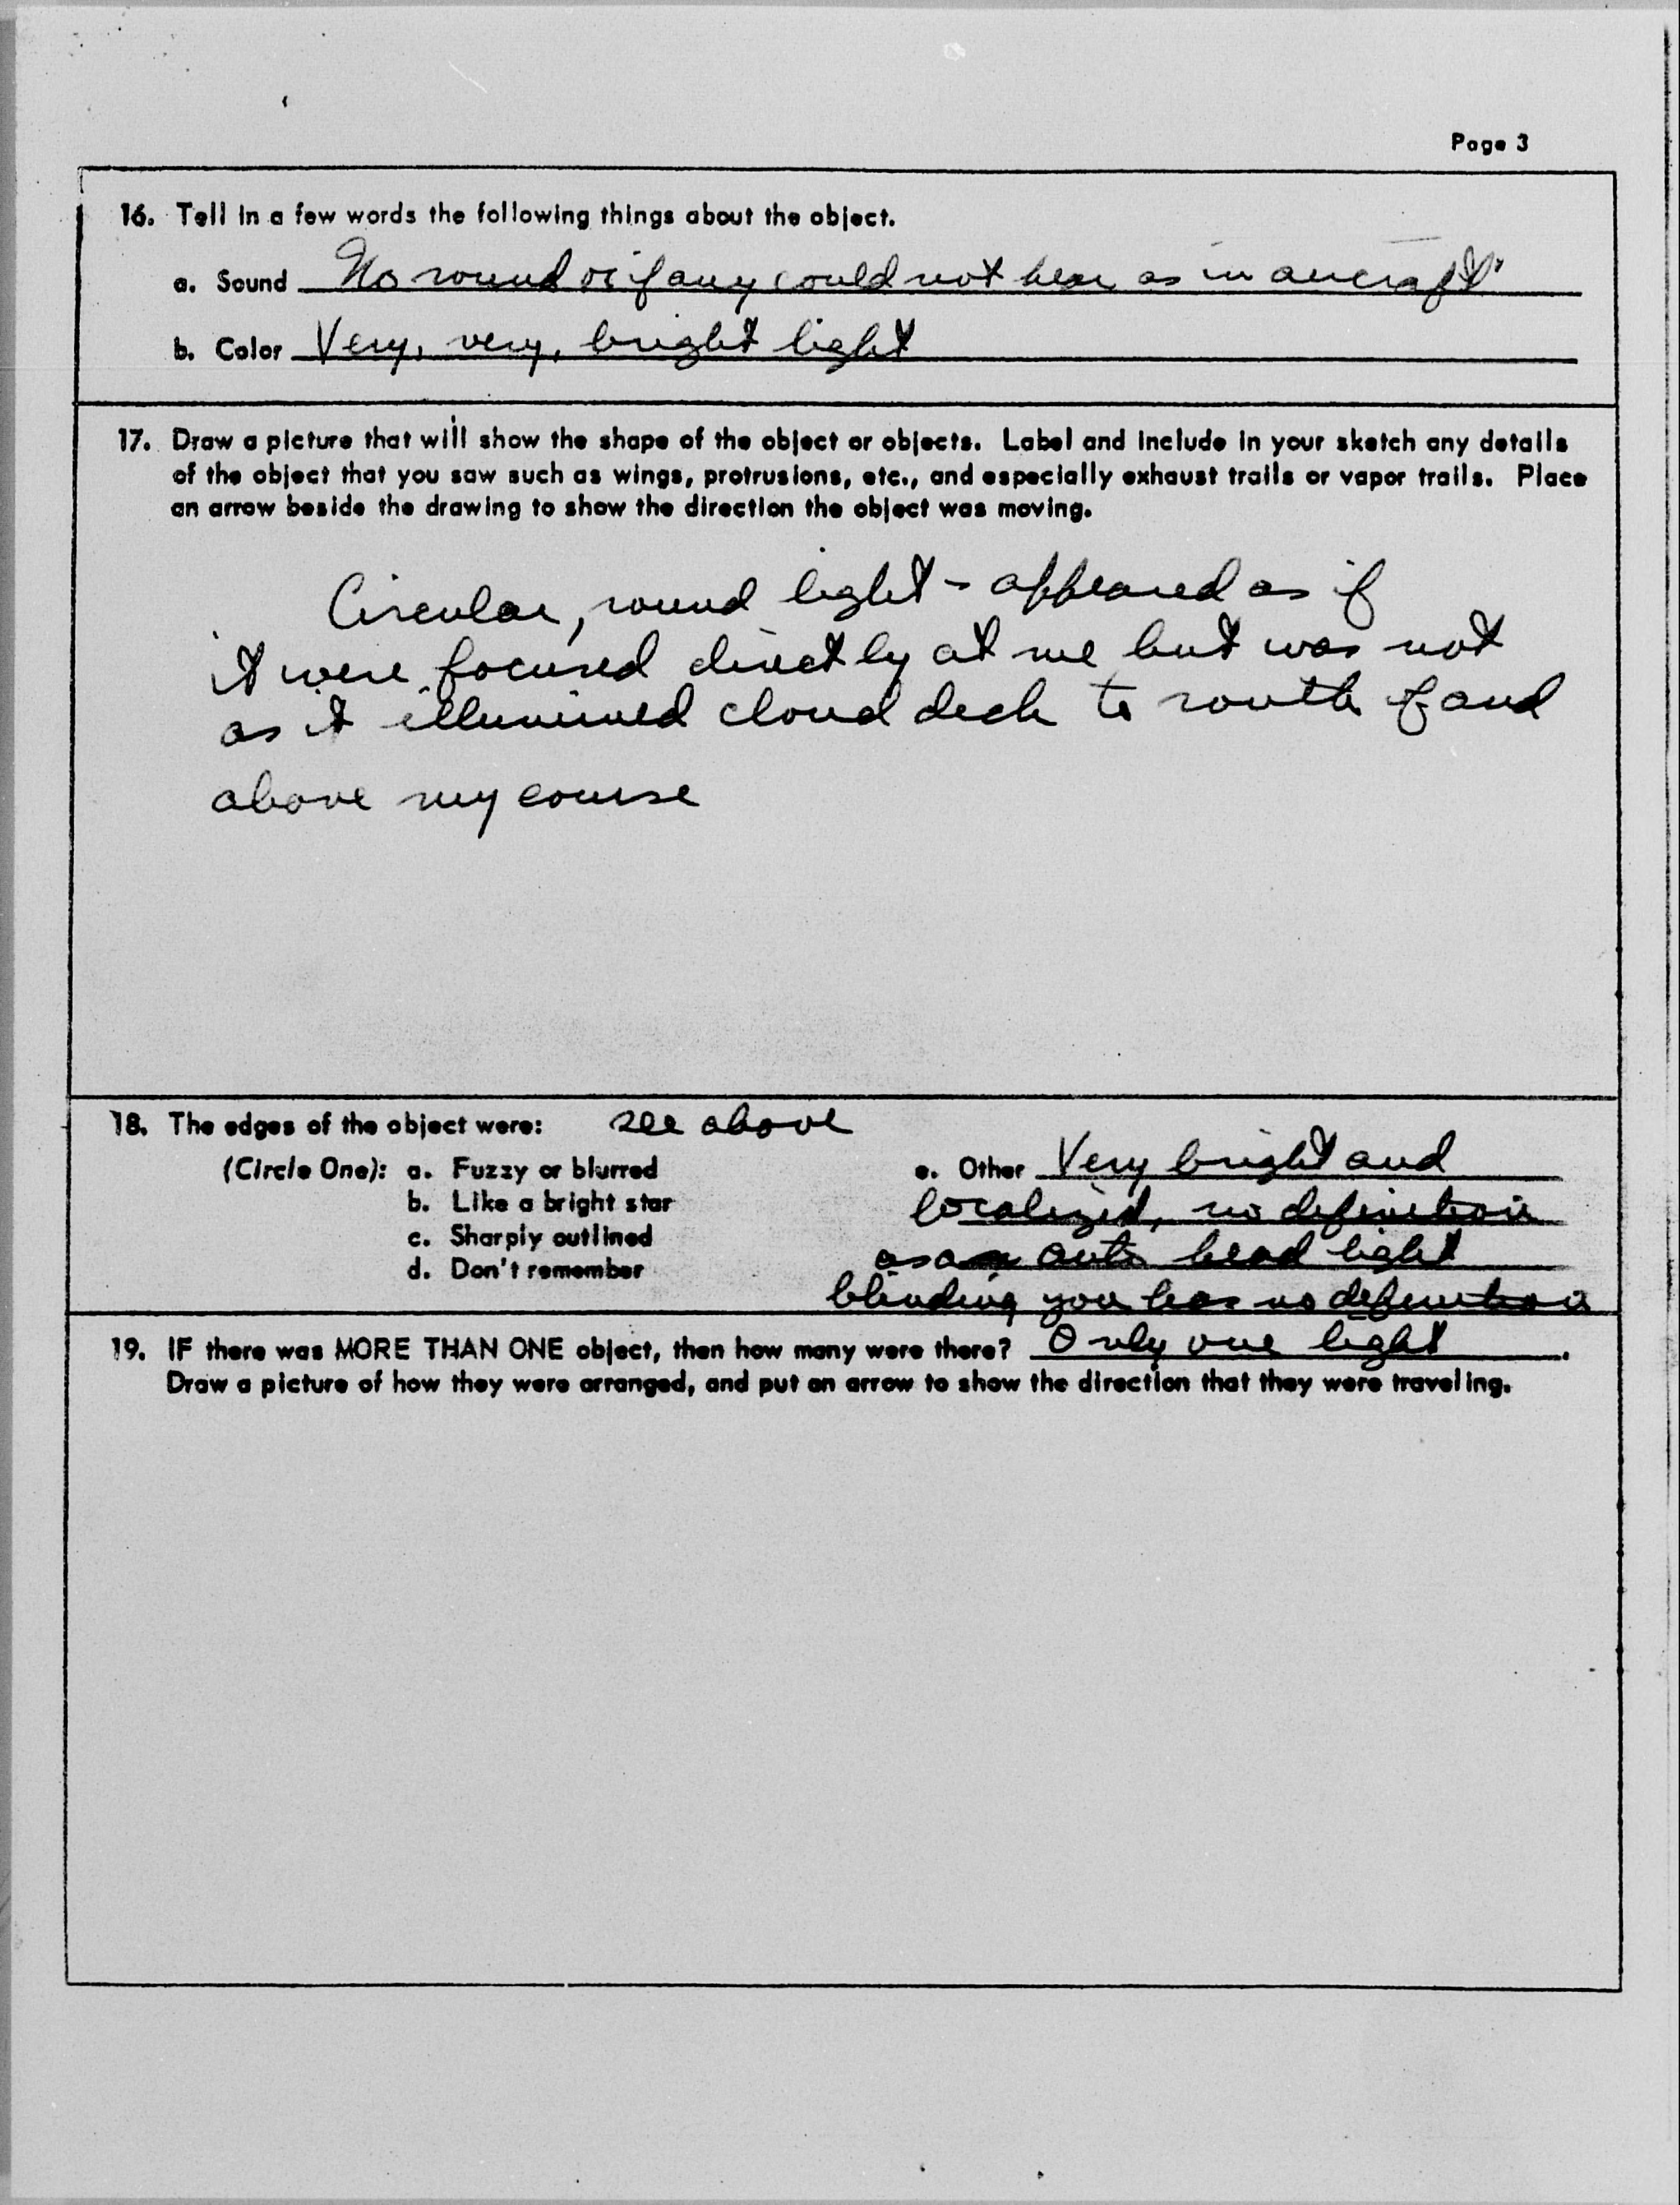 Page 3
16. Tell in a few words the following things about the object.
a. Sound No sound or if any could not hear as in aircraft
b. Color Very, very, bright light
17. Draw a picture that will show the shape of the object or objects. Label and include in your sketch any details
of the object that you saw such as wings, protrusions, etc., and especially exhaust trails or vapor trails. Place
an arrow beside the drawing to show the direction the object was moving.
Circular, round light - appeared as if
it were focused directly at me but was not
as it illumined cloud deck to south of and
above my course
18. The edges of the object were: see above
(Circle One): a. Fuzzy or blurred
b. Like a bright star
c. Sharply outlined
d. Don't remember
e. Other Very bright and
localized, no definition
as a auto head light
blinding you has no definition
19. IF there was MORE THAN ONE object, then how many were there? Only one light.
Draw a picture of how they were arranged, and put an arrow to show the direction that they were traveling.